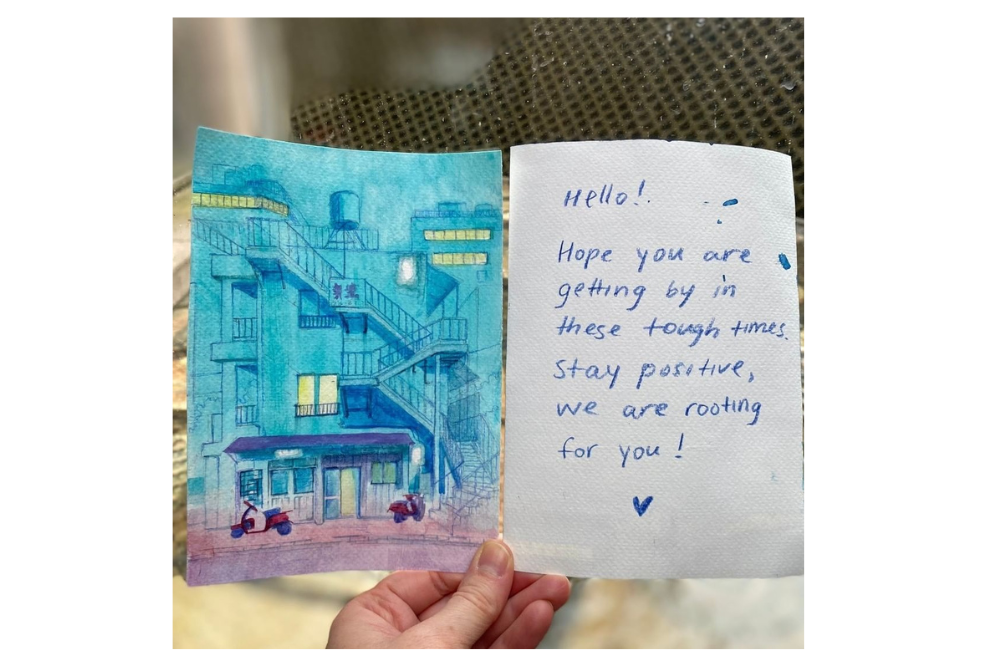 Hello!
Hope you are
getting by in
these tough times.
Stay positive,
we are rooting
for you!